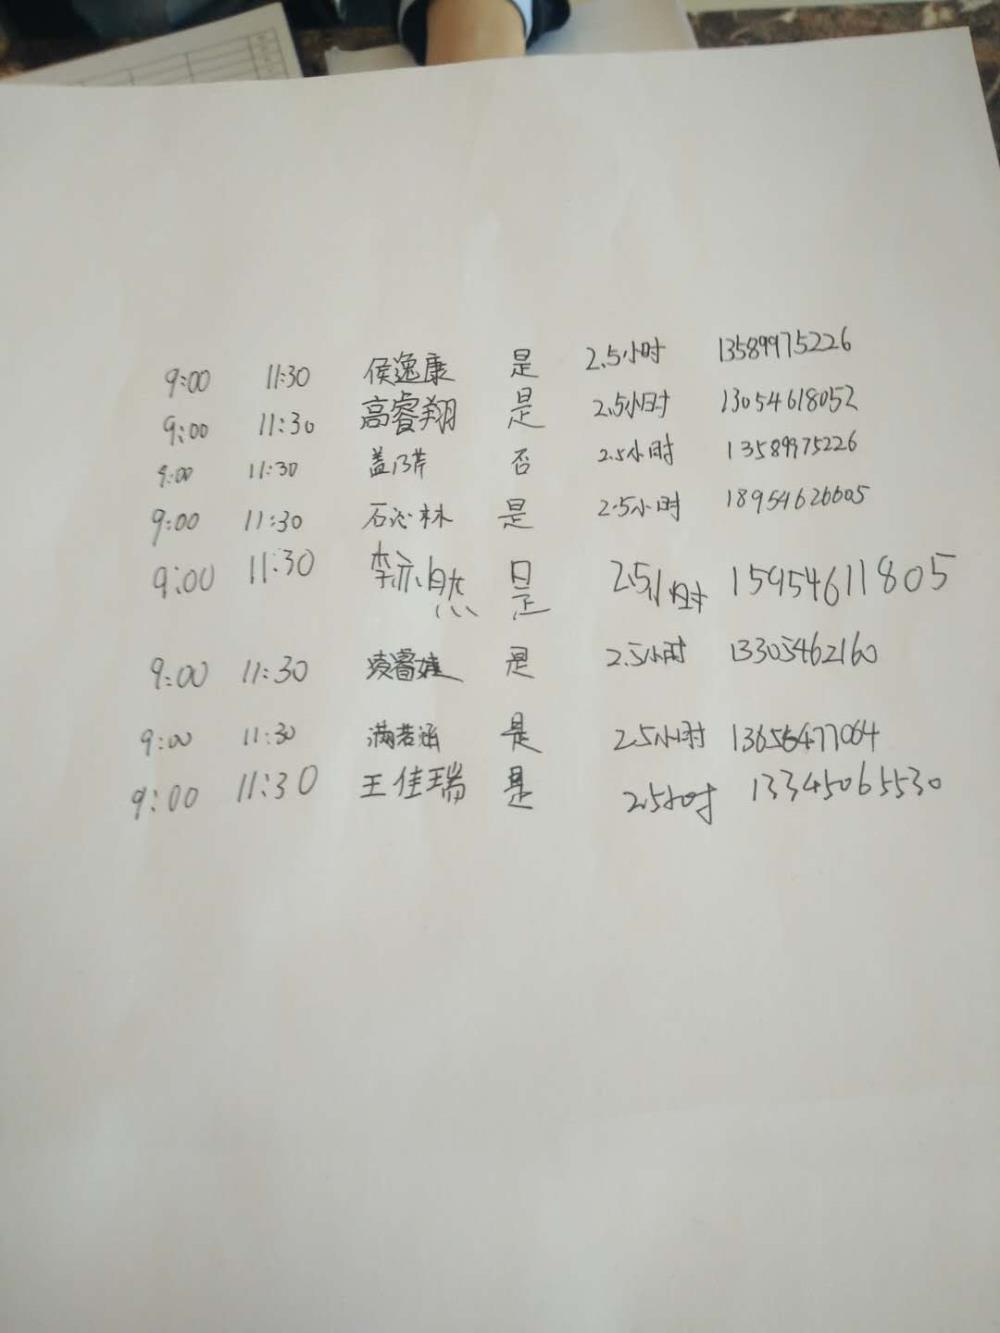 9:00 11:30 侯逸康 是 2.5小时 13589975226
9:00 11:30 高睿翔 是 2.5小时 13054618052
9:00 11:30 盖乃芹 否 2.5小时 13589975226
9:00 11:30 石沁林 是 2.5小时 18954626605
9:00 11:30 李亦自然 是 2.5小时 15954611805
9:00 11:30 凌睿婕 是 2.5小时 13305462160
9:00 11:30 满若涵 是 2.5小时 13656477064
9:00 11:30 王佳瑞 是 2.5小时 13345065530